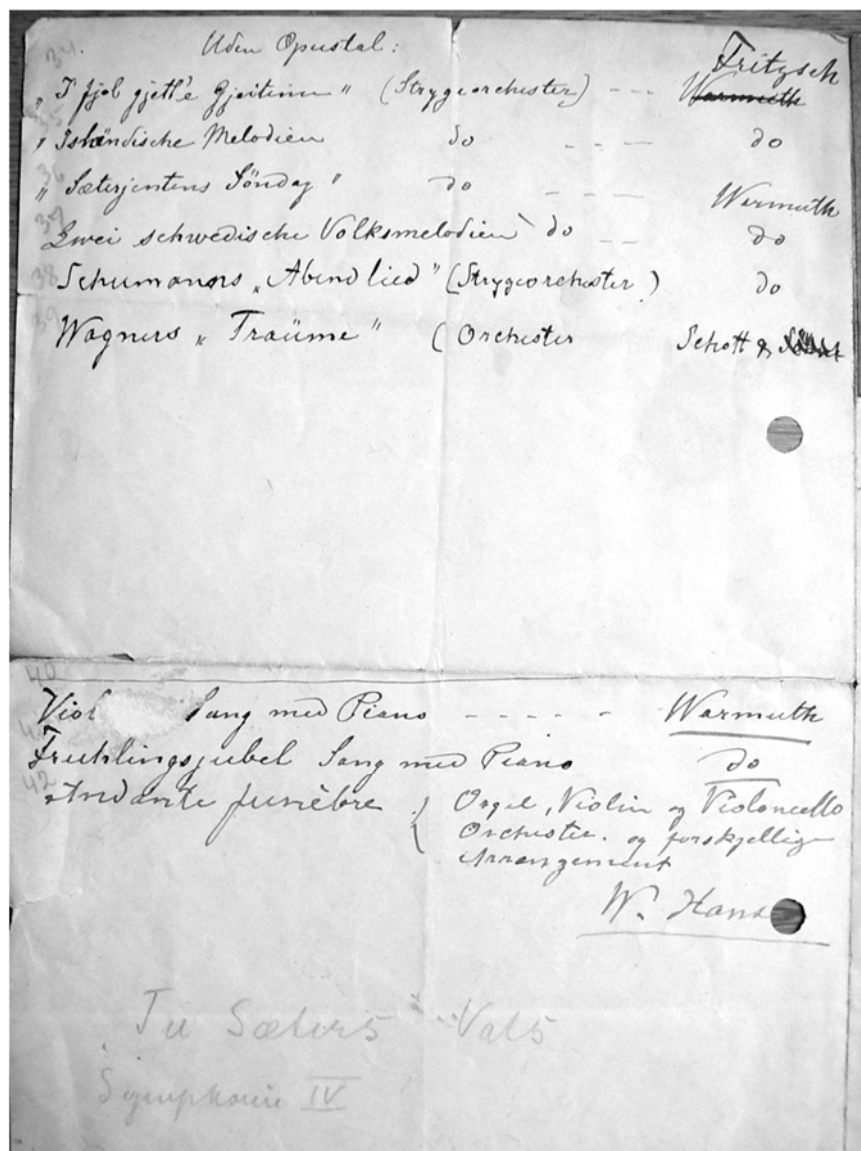 34.
Uden Opustal:
Fritzsch
„I fjol gjett'e Gjeitinn" (Strygeorchester) --- Warmuth
35
„Isländische Melodien do ---- do
36
„Sæterjentens Söndag" do --- Warmuth
37
Zwei schwedische Volksmelodien do -- do
38
Schumanns „Abendlied" (Strygeorchester) do
39
Wagners „Traüme" (Orchester Schott &
40
Sang med Piano ----- Warmuth
41
Fruhlingsjubel Sang med Piano do
42
Andante funèbre { Orgel, Violin og Violoncello
Orchester. og forskjellige
Arrangement
W. Hans
Til Sæters Vals
Symphonie IV